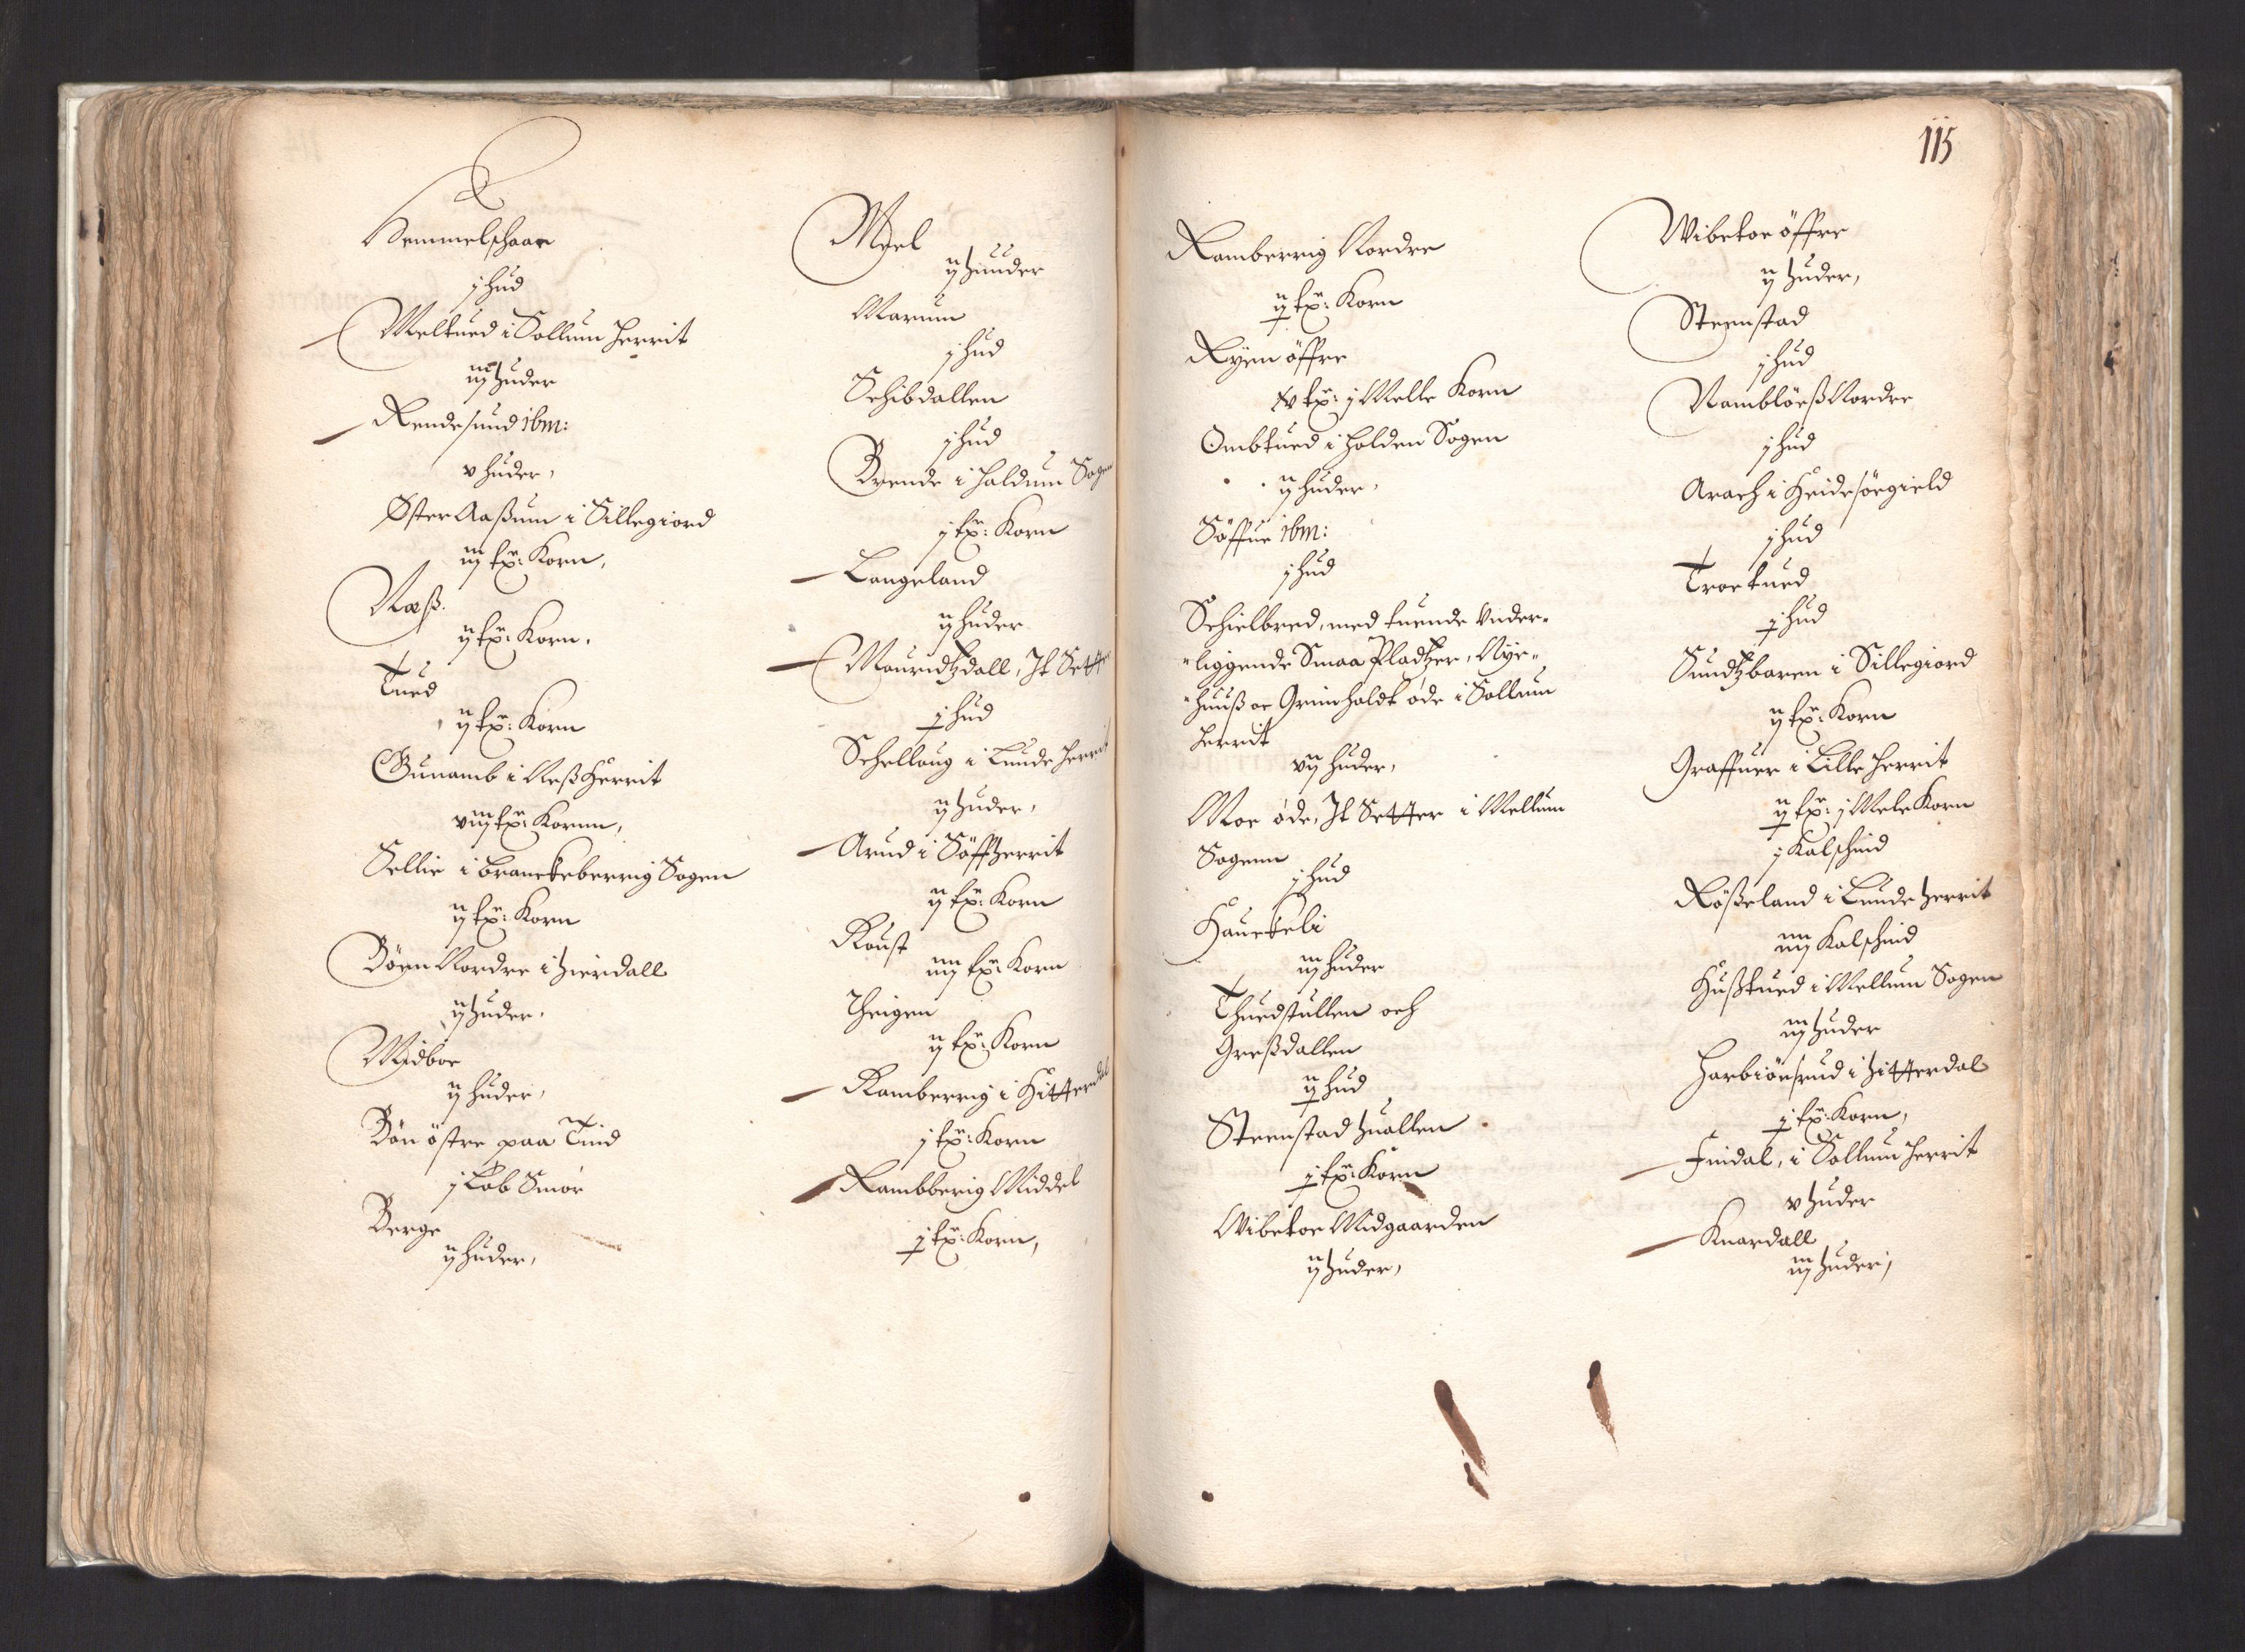 Hemmelschaar
j hud
Meltued i Sollum Herrit
iij huder
Rendesund ibm:
v huder,
Øster Aaßum i Sillegiord
iij sp: Korn,
Naß
ij sp: Korn.
Tued
ij sp: Korn
Gunamb i Neß Herrit
viij sp: Kornn,
Sellie i Branckeberrig Sogen
ij sp: Korn
Böen Nordre i Hierdall
ij huder.
Midboe
ij huder,
Bön östre paa Tind
j Lob Smör
Berge
ij huder,
Meel
ij huuder
Marum
j hud
Schibdallen
j hud
Brende i Haldum Sogen
j sp: Korn
Langeland
ij huder
Mouridtzdall, It Setter
j hud
Schelloug i Lunde Herrit
ij huder,
Arud i Söffherrit
ij sp: Korn
Roust
iiij sp: Korn
Theigen
ij sp: Korn
Ramberrig i Hitterdal
j sp: Korn
Rambberig Middel
j sp: Korn,
115
Ramberrig Nordre
ij sp: Korn
Ryen öffre
xv sp: j Melle Korn
Ombtued i Holden Sogen
ij huder,
Söffue ibm:
j hud
Schielbred, med tuende Vnder-
-liggende Smaa Pladtzer, Nye-
-huuß oc Grimholdt øde i Sollum
Herrit
vij huder,
Moe øde, It Setter i Mellum
Sogenn
j hud
Hauckeli
iij huder
Thuedstullen och
Greßdallen
ij hud
Steenstad Huallen
j sp: Korn
Wibetoe Midgaarden
ij huder,
Wibetoe öffre
ij huder,
Steenstad
j hud
Namblöeß Nordre
j hud
Arach i Heidesöegield
j hud
Troetued
j hud
Sundtzbaren i Sillegiord
ij sp: Korn
Graffuer i Lille Herrit
ij sp: j Mele Korn
j Kalschind
Rößeland i Lunde Herrit
iiij Kalschind
Hußtued i Mellum Sogen
iij huder
Harbiörsrud i Hitterdal
j sp: Korn,
Findal, i Sollum Herrit
v huder
Knardall
iij huder,